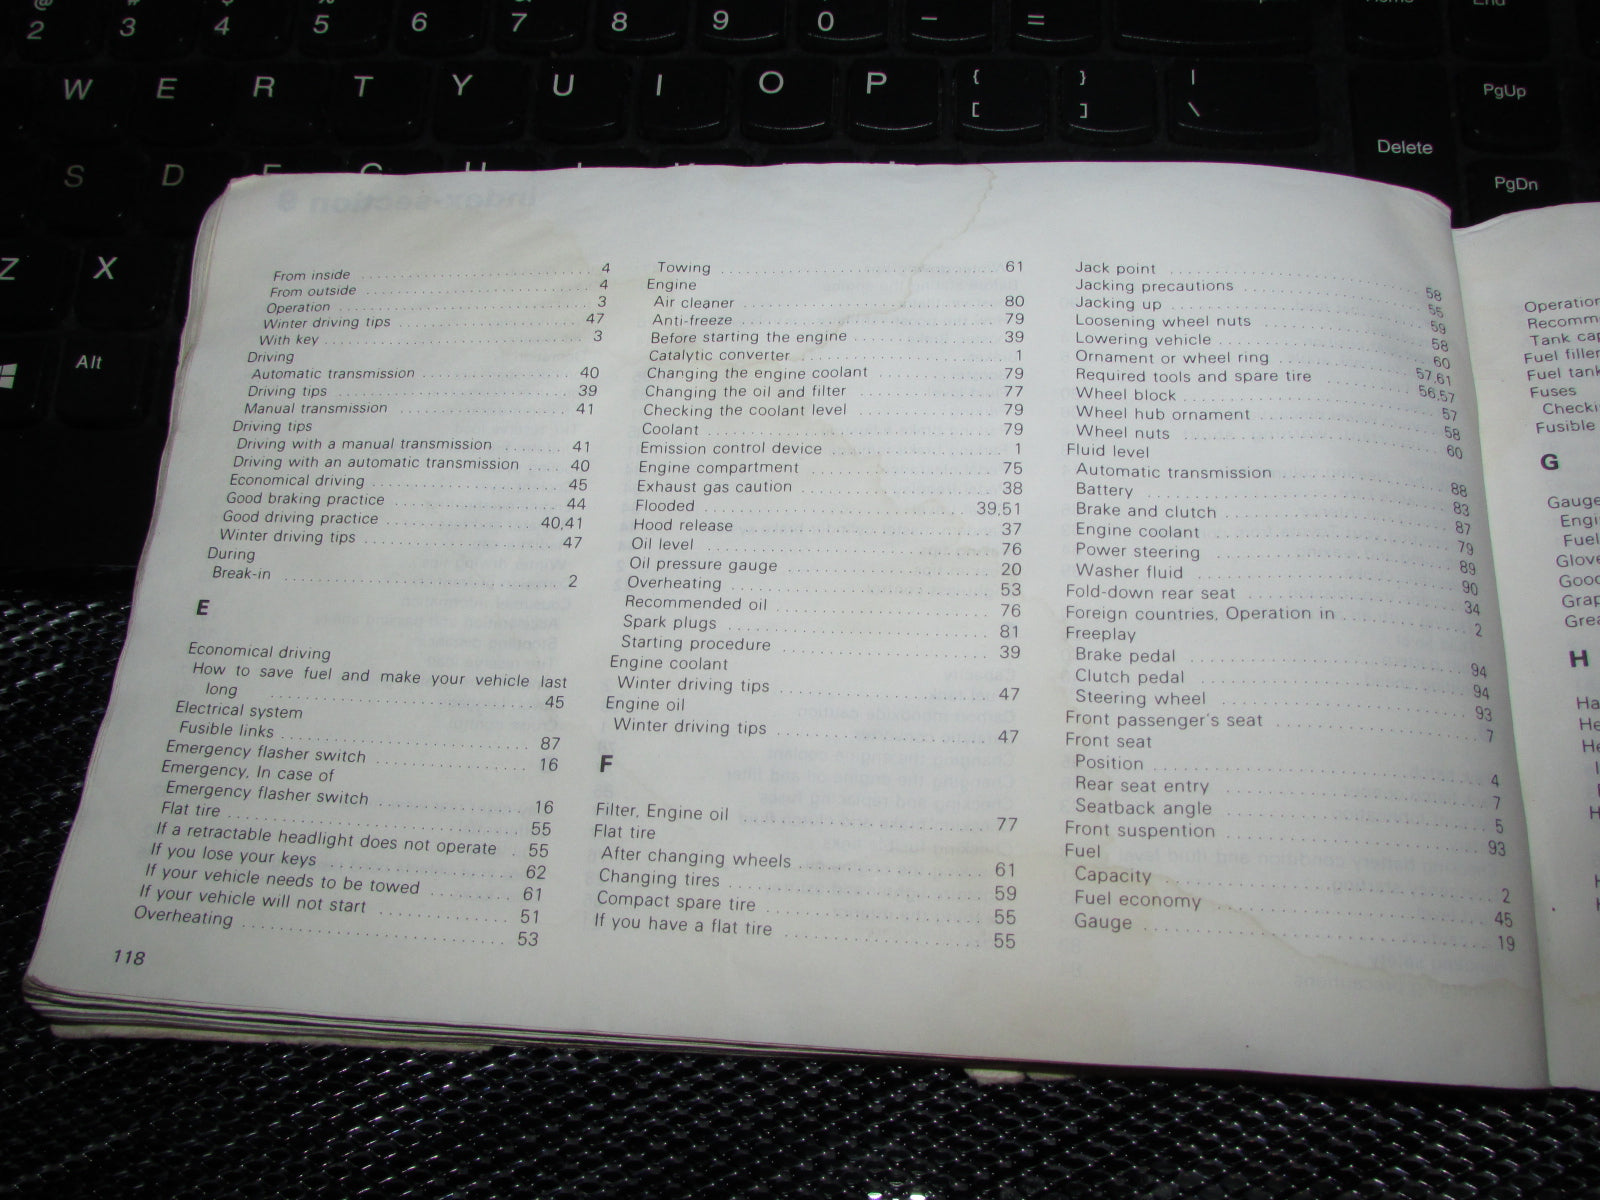 2 3 4 5 6 7 8 9 0 - =
W E R T Y U I O P { [ } ] | \ PgUp
Delete
S D PgDn
Z X
Alt
From inside 4
From outside 4
Operation 3
Winter driving tips 47
With key 3
Driving
Automatic transmission 40
Driving tips 39
Manual transmission 41
Driving tips
Driving with a manual transmission 41
Driving with an automatic transmission 40
Economical driving 45
Good braking practice 44
Good driving practice 40,41
Winter driving tips 47
During
Break-in 2
E
Economical driving
How to save fuel and make your vehicle last
long 45
Electrical system
Fusible links 87
Emergency flasher switch 16
Emergency, In case of
Emergency flasher switch 16
Flat tire 55
If a retractable headlight does not operate 55
If you lose your keys 62
If your vehicle needs to be towed 61
If your vehicle will not start 51
Overheating 53
118
Towing 61
Engine
Air cleaner 80
Anti-freeze 79
Before starting the engine 39
Catalytic converter 1
Changing the engine coolant 79
Changing the oil and filter 77
Checking the coolant level 79
Coolant 79
Emission control device 1
Engine compartment 75
Exhaust gas caution 38
Flooded 39,51
Hood release 37
Oil level 76
Oil pressure gauge 20
Overheating 53
Recommended oil 76
Spark plugs 81
Starting procedure 39
Engine coolant
Winter driving tips 47
Engine oil
Winter driving tips 47
F
Filter, Engine oil 77
Flat tire
After changing wheels 61
Changing tires 59
Compact spare tire 55
If you have a flat tire 55
Jack point 58
Jacking precautions 55
Jacking up 59
Loosening wheel nuts 58
Lowering vehicle 60
Ornament or wheel ring 57,61
Required tools and spare tire 56,57
Wheel block 57
Wheel hub ornament 58
Wheel nuts 60
Fluid level
Automatic transmission 88
Battery 83
Brake and clutch 87
Engine coolant 79
Power steering 89
Washer fluid 90
Fold-down rear seat 34
Foreign countries, Operation in 2
Freeplay
Brake pedal 94
Clutch pedal 94
Steering wheel 93
Front passenger's seat 7
Front seat
Position 4
Rear seat entry 7
Seatback angle 5
Front suspention 93
Fuel
Capacity 2
Fuel economy 45
Gauge 19
Operation
Tank
Fuel filler
Fuel tank
Fuses
Fusible
G
Fuel
H